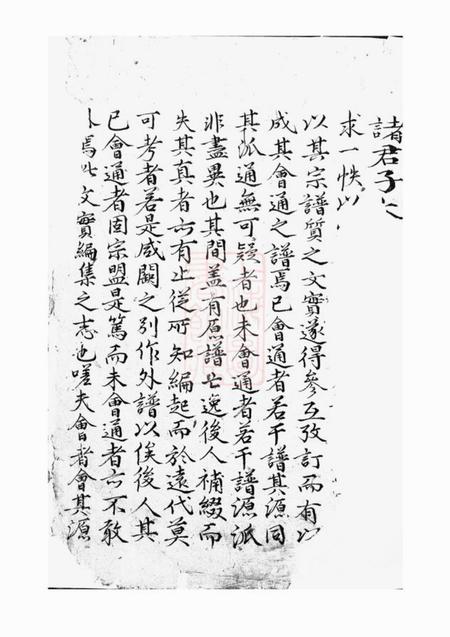 諸君子
求一帙以
以其宗譜質之文實遂得參互攷訂而有以
成其會通之譜焉已會通者若干譜其源同
其派通無可疑者也未會通者若干譜源派
非盡異也其間盖有原譜亡逸後人補綴而
失其真者亦有止從所知編起而於遠代莫
可考者若是咸闕之别作外譜以俟後人其
已會通者固宗盟是篤而未會通者亦不敢
焉此文實編集之志也嗟夫會者會其源